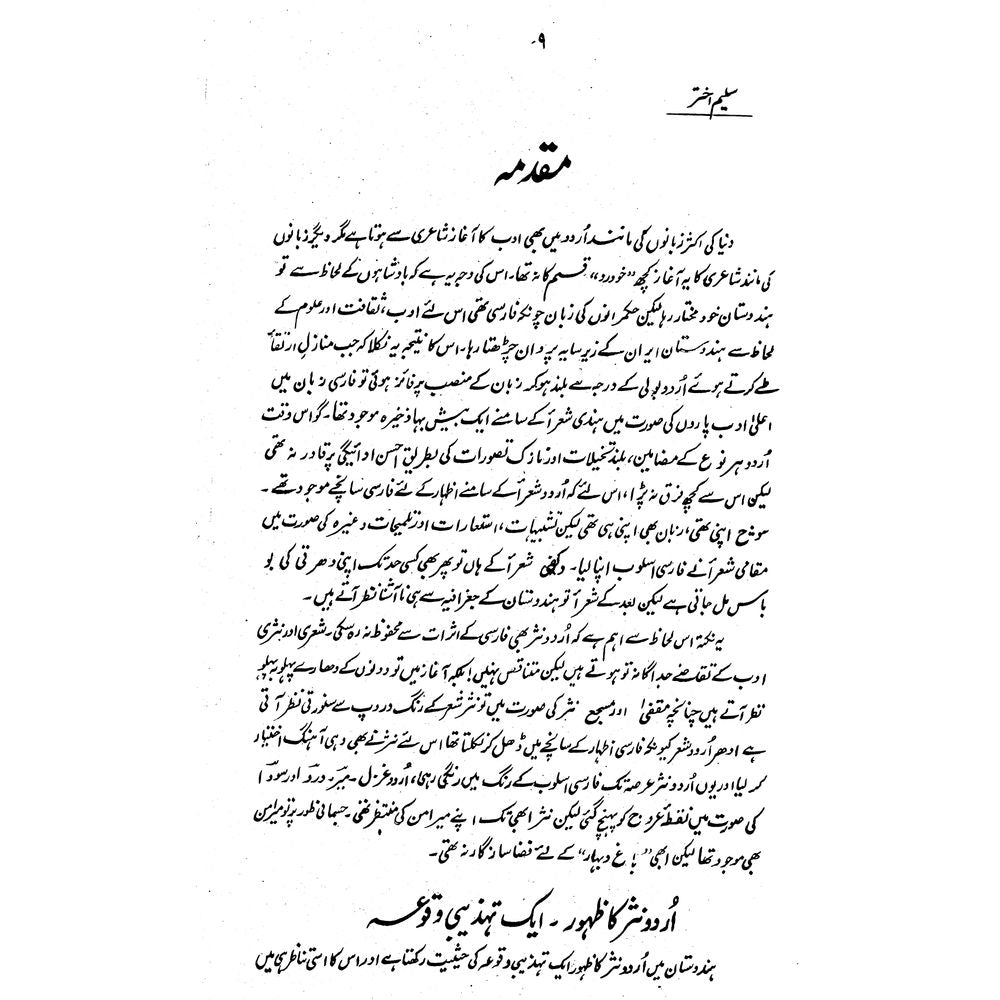 ۹
سلیم اختر
مقدمہ
دنیا کی اکثر زبانوں کی مانند اُردو میں بھی ادب کا آغاز شاعری سے ہوتا ہے مگر دیگر زبانوں
کی مانند شاعری کا یہ آغاز کچھ "خودرو" قسم کا نہ تھا۔ اس کی وجہ یہ ہے کہ بادشاہوں کے لحاظ سے تو
ہندوستان خود مختار رہا لیکن حکمرانوں کی زبان چونکہ فارسی تھی اس لئے ادب، ثقافت اور علوم کے
لحاظ سے ہندوستان ایران کے زیر سایہ پروان چڑھتا رہا۔ اس کا نتیجہ یہ نکلا کہ جب منازل ارتقاء
طے کرتے ہوئے اُردو بولی کے درجہ سے بلند ہو کر زبان کے منصب پر فائز ہوئی تو فارسی زبان میں
اعلیٰ ادب پاروں کی صورت میں ہندی شعرأ کے سامنے ایک بیش بہا ذخیرہ موجود تھا۔ گو اس وقت
اُردو ہر نوع کے مضامین، بلند تخیلات اور نازک تصورات کی بطریق احسن ادائیگی پر قادر نہ تھی
لیکن اس سے کچھ فرق نہ پڑا، اس لئے کہ اُردو شعرأ کے سامنے اظہار کے لئے فارسی سانچے موجود تھے۔
سوچ اپنی تھی، زبان بھی اپنی ہی تھی لیکن تشبیہات، استعارات اور تلمیحات وغیرہ کی صورت میں
مقامی شعرأ نے فارسی اسلوب اپنا لیا۔ دکنی شعرأ کے ہاں تو پھر بھی کسی حد تک اپنی دھرتی کی بو
باس مل جاتی ہے لیکن بعد کے شعرأ تو ہندوستان کے جغرافیہ سے ہی ناآشنا نظر آتے ہیں۔
یہ نکتہ اس لحاظ سے اہم ہے کہ اُردو نثر بھی فارسی کے اثرات سے محفوظ نہ رہ سکی۔ شعری اور نثری
ادب کے تقاضے جداگانہ تو ہوتے ہیں لیکن متناقص نہیں! بلکہ آغاز میں تو دونوں کے دھارے پہلو بہ پہلو
نظر آتے ہیں چنانچہ مقفیٰ اور مسجع نثر کی صورت میں تو نثر شعر کے رنگ و روپ سے سنورتی نظر آتی
ہے ادھر اُردو شعر کیونکہ فارسی اظہار کے سانچے میں ڈھل کر نکلتا تھا اس لئے نثر نے بھی وہی آہنگ اختیار
کر لیا اور یوں اُردو نثر عرصہ تک فارسی اسلوب کے رنگ میں رنگی رہی، اُردو غزل ۔ میر، درد اور سودا
کی صورت میں نقطۂ عروج کو پہنچ گئی لیکن نثر ابھی تک اپنے میر امن کی منتظر تھی۔ جسمانی طور پر تو میر امن
بھی موجود تھا لیکن ابھی "باغ و بہار" کے لئے فضا سازگار نہ تھی۔
اُردو نثر کا ظہور ۔ ایک تہذیبی وقوعہ
ہندوستان میں اُردو نثر کا ظہور ایک تہذیبی وقوعہ کی حیثیت رکھتا ہے اور اس کا اسی تناظر ہی میں